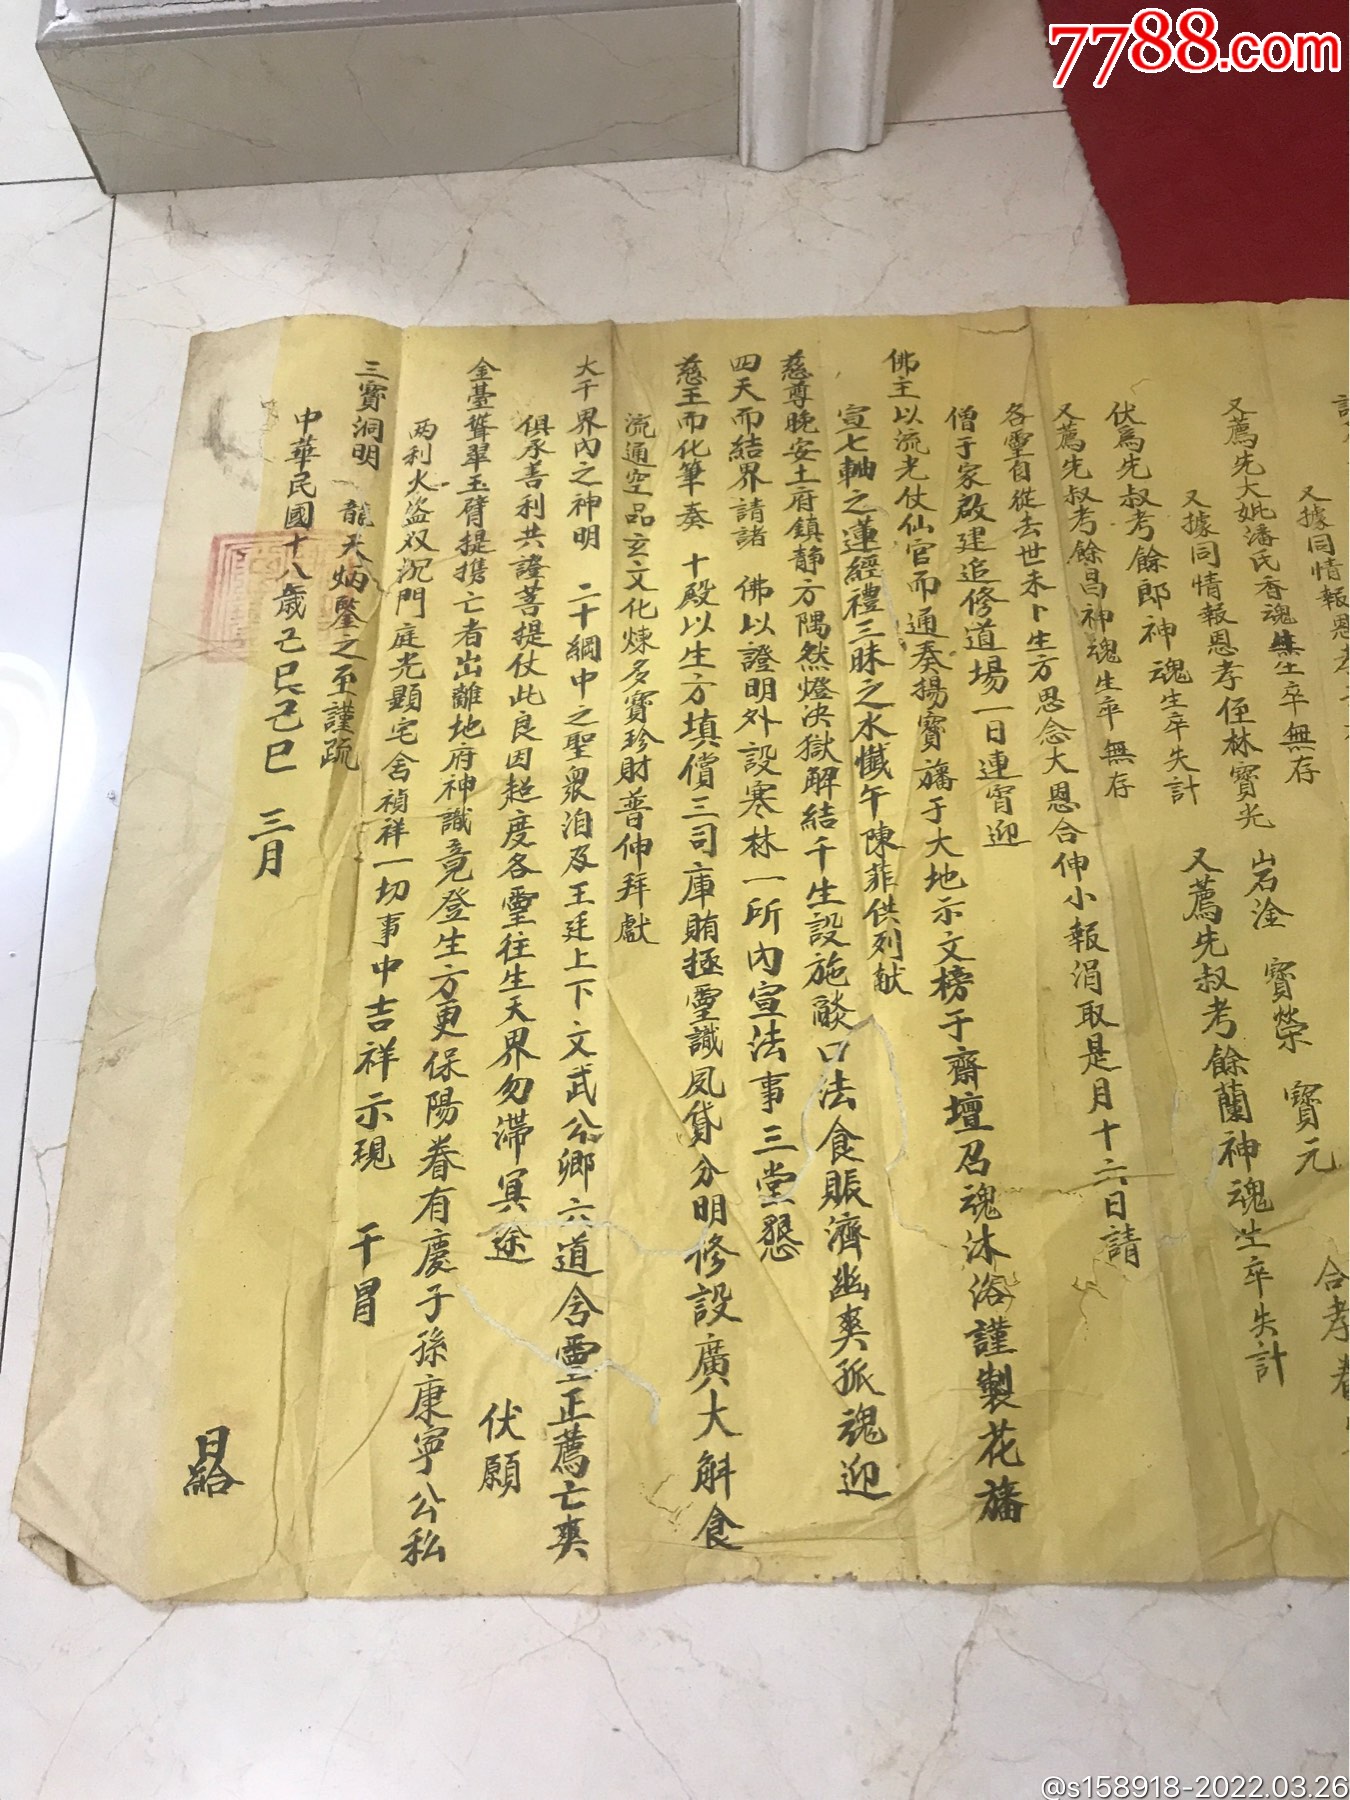 7788.com
又據同情報恩孝
合孝眷
又薦先大妣潘氏香魂生卒無存
岩淦 寶榮 寶元
又據同情報恩孝侄林寶光
又薦先叔考餘蘭神魂生卒失計
伏爲先叔考餘郎神魂生卒失計
又薦先叔考餘昌神魂生卒無存
各靈自從去世未卜生方思念大恩合伸小報涓取是月十六日請
僧于家啟建追修道場一日連宵迎
佛主以流光仗仙官而通奏揚寶旛于大地示文榜于齋壇召魂沐浴謹製花旛
宣七軸之蓮經禮三昧之水懺午陳菲供列献
慈尊晚安土府鎮静方隅然燈決獄解結千生設施燄口法食賑濟幽爽孤魂迎
四天而結界請諸 佛以證明外設寒林一所內宣法事三堂懇
慈王而化筆奏 十殿以生方填償三司庫賄拯靈識夙貸分明修設廣大斛食
流通空品玄文化煉多寶珍財普伸拜獻
大千界內之神明 二十綱中之聖眾洎及王廷上下文武公卿六道含靈正薦亡爽
俱承善利共證菩提仗此良因超度各靈往生天界勿滯冥途 伏願
金臺聳翠玉臂提携亡者出離地府神識竟登生方更保陽眷有慶子孫康寧公私
两利火盜双沉門庭光顯宅舍禎祥一切事中吉祥示現 干冒
三寶洞明 龍天炳鑒之至謹疏
中華民國十八歲己巳己巳 三月
日給
@s158918-2022.03.26